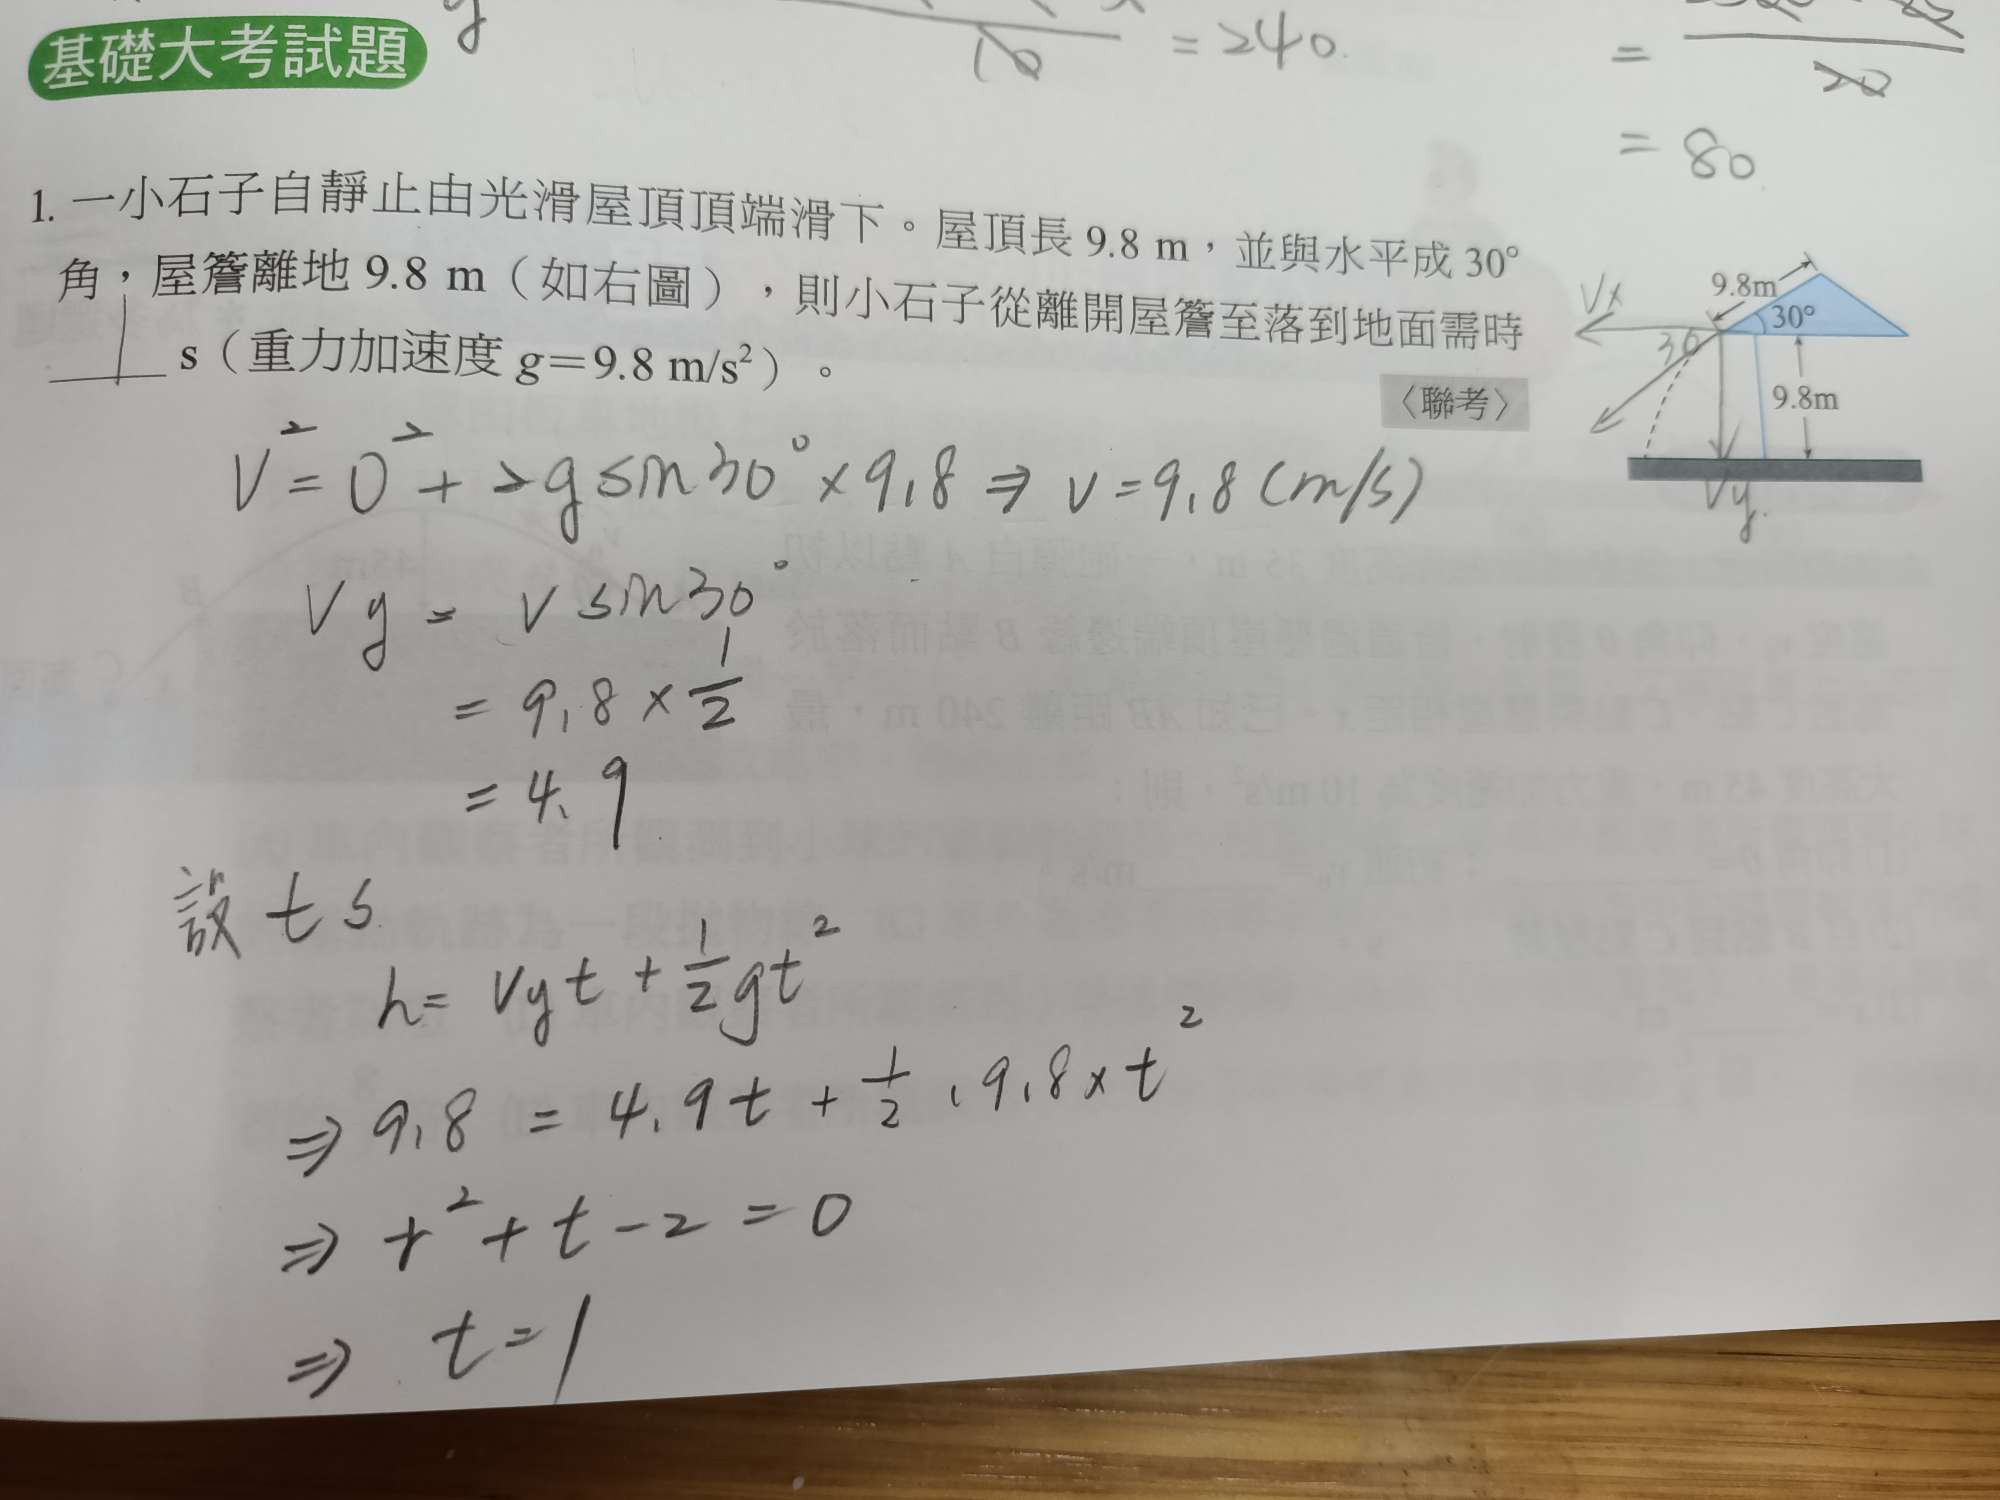 基礎大考試題
y
10 = 240.
=
20
= 80.
1. 一小石子自靜止由光滑屋頂頂端滑下。屋頂長 9.8 m,並與水平成 30°
角,屋簷離地 9.8 m(如右圖),則小石子從離開屋簷至落到地面需時
1 s(重力加速度 g=9.8 m/s²)。
〈聯考〉
Vx
9.8m
30°
30
9.8m
Vy.
V² = 0² + 2g sin30° × 9.8 ⇒ v = 9.8 (m/s)
Vy = v sin30°
= 9.8 × 1/2
= 4.9
設 t s
h = Vy t + 1/2 g t²
⇒ 9.8 = 4.9t + 1/2 · 9.8 × t²
⇒ t² + t - 2 = 0
⇒ t = 1